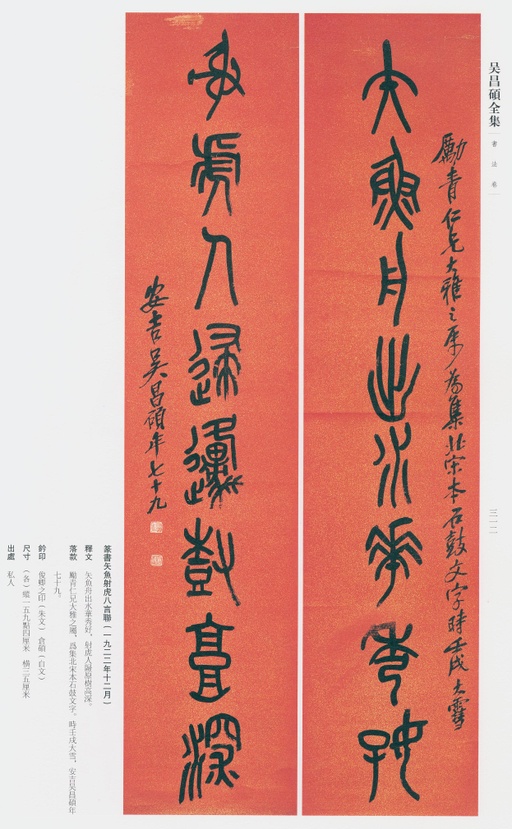 吴昌碩全集
書法卷
三一二
勵青仁兄大雅之屬為集北宋本石鼓文字時壬戌大雪
矢魚舟出水華秀好
射虎人歸邍樹高深
安吉吳昌碩年七十九
篆書矢魚射虎八言聯(一九二二年十二月)
釋文 矢魚舟出水華秀好,射虎人歸原樹高深。
落款 勵青仁兄大雅之屬,爲集北宋本石鼓文字。時壬戌大雪,安吉吳昌碩年
七十九。
鈐印 俊卿之印(朱文) 倉碩(白文)
尺寸 (各)縱一五九點四厘米 橫三五厘米
出處 私人